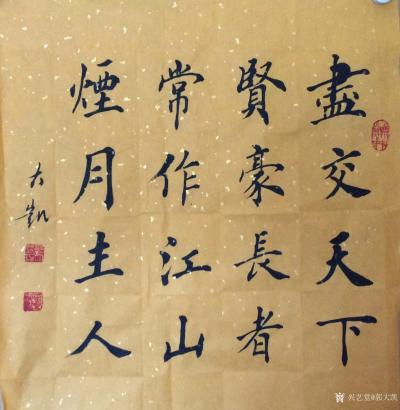 盡交天下
賢豪長者
常作江山
煙月主人
大凱
兴艺堂@郭大凯